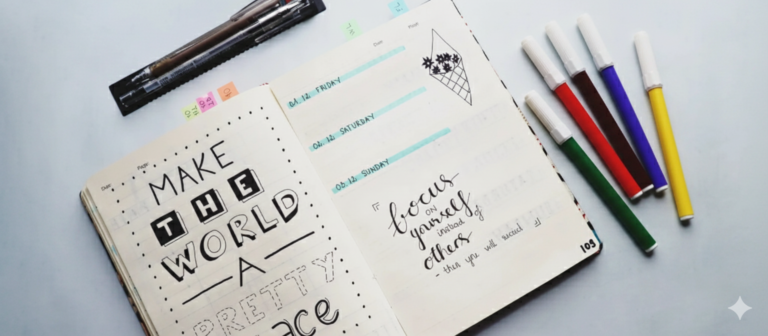 Date:
Page:
MAKE
THE
WORLD
A
PRETTY
ace
Date
01. 12. FRIDAY
02. 12. SATURDAY
03. 12. SUNDAY
focus
on
yourself
instead of
others
- then you will succeed :)
105